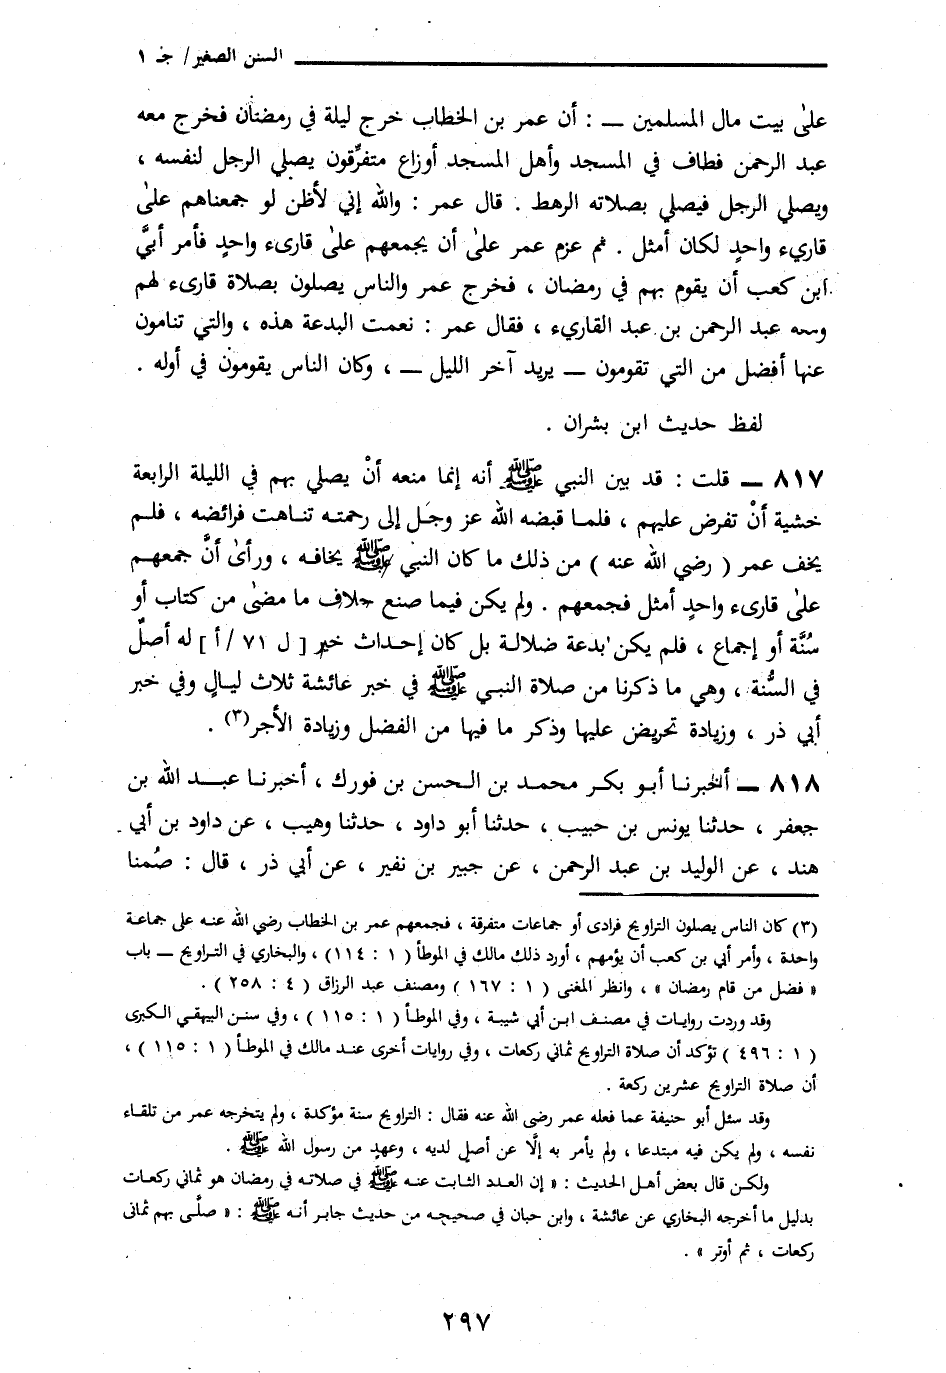 السنن الصغير / جـ ١
علىٰ بيت مال المسلمين ــ : أن عمر بن الخطاب خرج ليلة في رمضان فخرج معه
عبد الرحمن فطاف في المسجد وأهل المسجد أوزاع متفرِّقون يصلي الرجل لنفسه ،
ويصلي الرجل فيصلي بصلاته الرهط . قال عمر : والله إني لأظن لو جمعناهم علىٰ
قاريء واحدٍ لكان أمثل . ثم عزم عمر علىٰ أن يجمعهم علىٰ قارىء واحدٍ فأمر أبيَّ
ابن كعب أن يقوم بهم في رمضان ، فخرج عمر والناس يصلون بصلاة قارىء لهم
ومعه عبد الرحمن بن عبد القاريء ، فقال عمر : نعمت البدعة هذه ، والتي تنامون
عنها أفضل من التي تقومون ــ يريد آخر الليل ــ ، وكان الناس يقومون في أوله .
لفظ حديث ابن بشران .
٨١٧ ــ قلت : قد بين النبي ﷺ أنه إنما منعه أنْ يصلي بهم في الليلة الرابعة
خشية أنْ تفرض عليهم ، فلما قبضه الله عز وجَل إلى رحمته تناهت فرائضه ، فلم
يخف عمر ( رضي الله عنه ) من ذلك ما كان النبي ﷺ يخافه ، ورأىٰ أنَّ جمعهم
علىٰ قارىء واحدٍ أمثل فجمعهم . ولم يكن فيما صنع خلاف ما مضىٰ من كتاب أو
سُنَّة أو إجماع ، فلم يكن بدعة ضلالة بل كان إحداث خير [ ل ٧١ / أ ] له أصلٌ
في السُّنة ، وهي ما ذكرنا من صلاة النبي ﷺ في خبر عائشة ثلاث ليالٍ وفي خبر
أبي ذر ، وزيادة تحريض عليها وذكر ما فيها من الفضل وزيادة الأجر(٣) .
٨١٨ ــ أخبرنا أبو بكر محمد بن الحسن بن فورك ، أخبرنا عبد الله بن
جعفر ، حدثنا يونس بن حبيب ، حدثنا أبو داود ، حدثنا وهيب ، عن داود بن أبي
هند ، عن الوليد بن عبد الرحمن ، عن جبير بن نفير ، عن أبي ذر ، قال : صُمنا
(٣) كان الناس يصلون التراويح فرادى أو جماعات متفرقة ، فجمعهم عمر بن الخطاب رضي الله عنه على جماعة
واحدة ، وأمر أبي بن كعب أن يؤمهم ، أورد ذلك مالك في الموطأ ( ١ : ١١٤ ) ، والبخاري في التراويح ــ باب
« فضل من قام رمضان » ، وانظر المغنى ( ١ : ١٦٧ ) ومصنف عبد الرزاق ( ٤ : ٢٥٨ ) .
وقد وردت روايات في مصنف ابن أبي شيبة ، وفي الموطأ ( ١ : ١١٥ ) ، وفي سنن البيهقي الكبرى
( ١ : ٤٩٦ ) تؤكد أن صلاة التراويح ثماني ركعات ، وفي روايات أخرى عند مالك في الموطأ ( ١ : ١١٥ ) ،
أن صلاة التراويح عشرين ركعة .
وقد سئل أبو حنيفة عما فعله عمر رضى الله عنه فقال : التراويح سنة مؤكدة ، ولم يتخرجه عمر من تلقاء
نفسه ، ولم يكن فيه مبتدعا ، ولم يأمر به إلَّا عن أصلٍ لديه ، وعهدٍ من رسول الله ﷺ .
ولكن قال بعض أهل الحديث : « إن العدد الثابت عنه ﷺ في صلاته في رمضان هو ثماني ركعات
بدليل ما أخرجه البخاري عن عائشة ، وابن حبان في صحيحه من حديث جابر أنه ﷺ : « صلَّى بهم ثمانى
ركعات ، ثم أوتر » .
٢٩٧